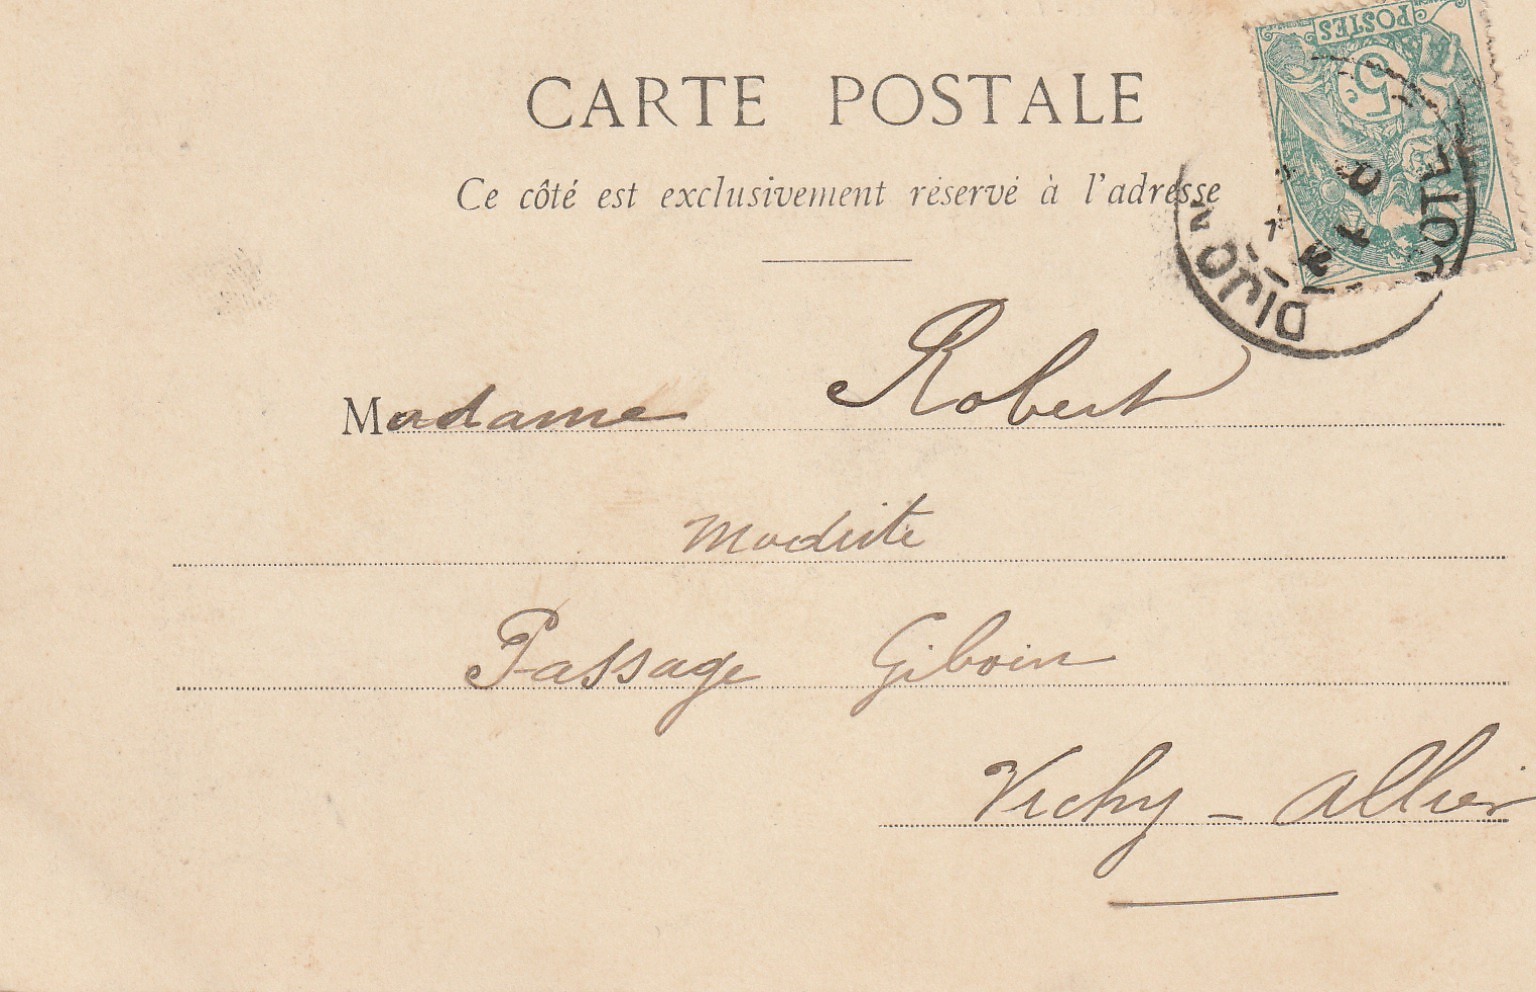 POSTES
5c
CARTE POSTALE
Ce côté est exclusivement réservé à l'adresse
DIJON
COTE
Madame Robert
Modiste
Passage Giboin
Vichy - Allier